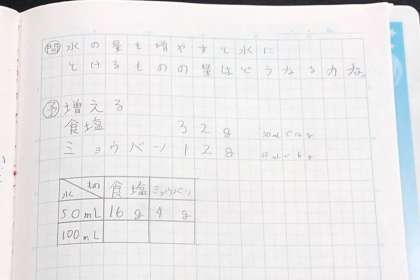 問 水の量を増やすと水に
とけるものの量はどうなるかな。
予 増える
食塩 32g
ミョウバン 12g
水 物 食塩 ミョウバン
50mL 16g 4g
100mL